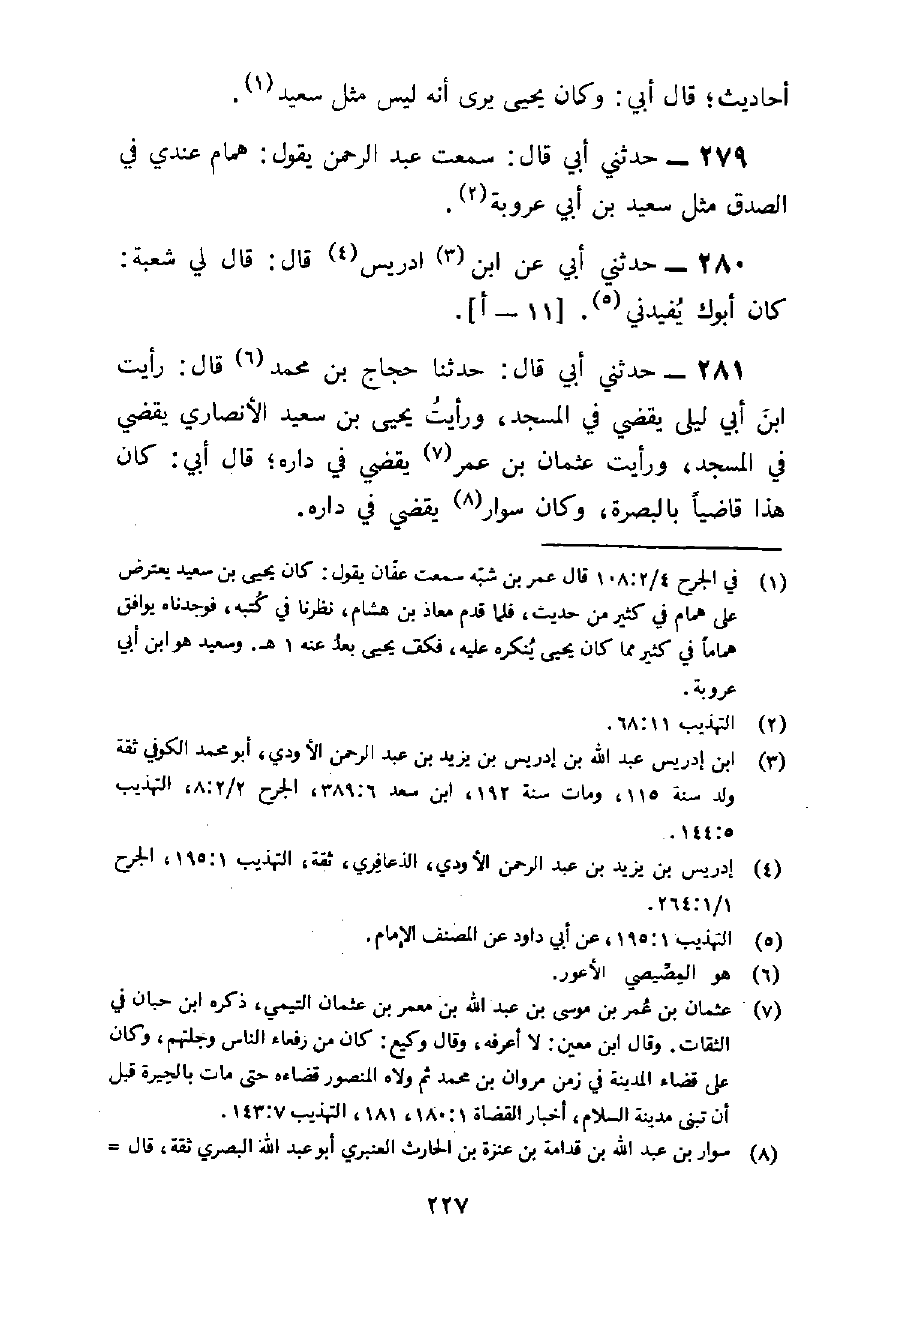 أحاديث؛ قال أبي: وكان يحيى يرى أنه ليس مثل سعيد(١).
٢٧٩ ــ حدثني أبي قال: سمعت عبد الرحمن يقول: همام عندي في
الصدق مثل سعيد بن أبي عروبة(٢).
٢٨٠ ــ حدثني أبي عن ابن(٣) ادريس(٤) قال: قال لي شعبة:
كان أبوك يُفيدني(٥). [١١ ــ أ].
٢٨١ ــ حدثني أبي قال: حدثنا حجاج بن محمد(٦) قال: رأيت
ابنَ أبي ليلى يقضي في المسجد، ورأيتُ يحيى بن سعيد الأنصاري يقضي
في المسجد، ورأيت عثمان بن عمر(٧) يقضي في داره؛ قال أبي: كان
هذا قاضياً بالبصرة، وكان سوار(٨) يقضي في داره.
(١) في الجرح ١٠٨:٢/٤ قال عمر بن شبّه سمعت عفّان يقول: كان يحيى بن سعيد يعترض
على همام في كثير من حديث، فلما قدم معاذ بن هشام، نظرنا في كُتبه، فوجدناه يوافق
هماماً في كثير مما كان يحيى يُنكره عليه، فكف يحيى بعدُ عنه ١ هـ. وسعيد هو ابن أبي
عروبة.
(٢) التهذيب ٦٨:١١.
(٣) ابن إدريس عبد الله بن إدريس بن يزيد بن عبد الرحمن الأودي، أبو محمد الكوفي ثقة
ولد سنة ١١٥، ومات سنة ١٩٢، ابن سعد ٣٨٩:٦، الجرح ٨:٢/٢، التهذيب
١٤٤:٥.
(٤) إدريس بن يزيد بن عبد الرحمن الأودي، الذعافري، ثقة، التهذيب ١٩٥:١، الجرح
٢٦٤:١/١.
(٥) التهذيب ١٩٥:١، عن أبي داود عن المصنف الإمام.
(٦) هو المِصّيصي الأعور.
(٧) عثمان بن عُمر بن موسى بن عبد الله بن معمر بن عثمان التيمي، ذكره ابن حبان في
الثقات. وقال ابن معين: لا أعرفه، وقال وكيع: كان من رفعاء الناس وجلتهم، وكان
على قضاء المدينة في زمن مروان بن محمد ثم ولاه المنصور قضاءه حتى مات بالحيرة قبل
أن تبنى مدينة السلام، أخبار القضاة ١٨٠:١، ١٨١، التهذيب ١٤٣:٧.
(٨) سوار بن عبد الله بن قدامة بن عنزة بن الحارث العنبري أبو عبد الله البصري ثقة، قال =
٢٢٧